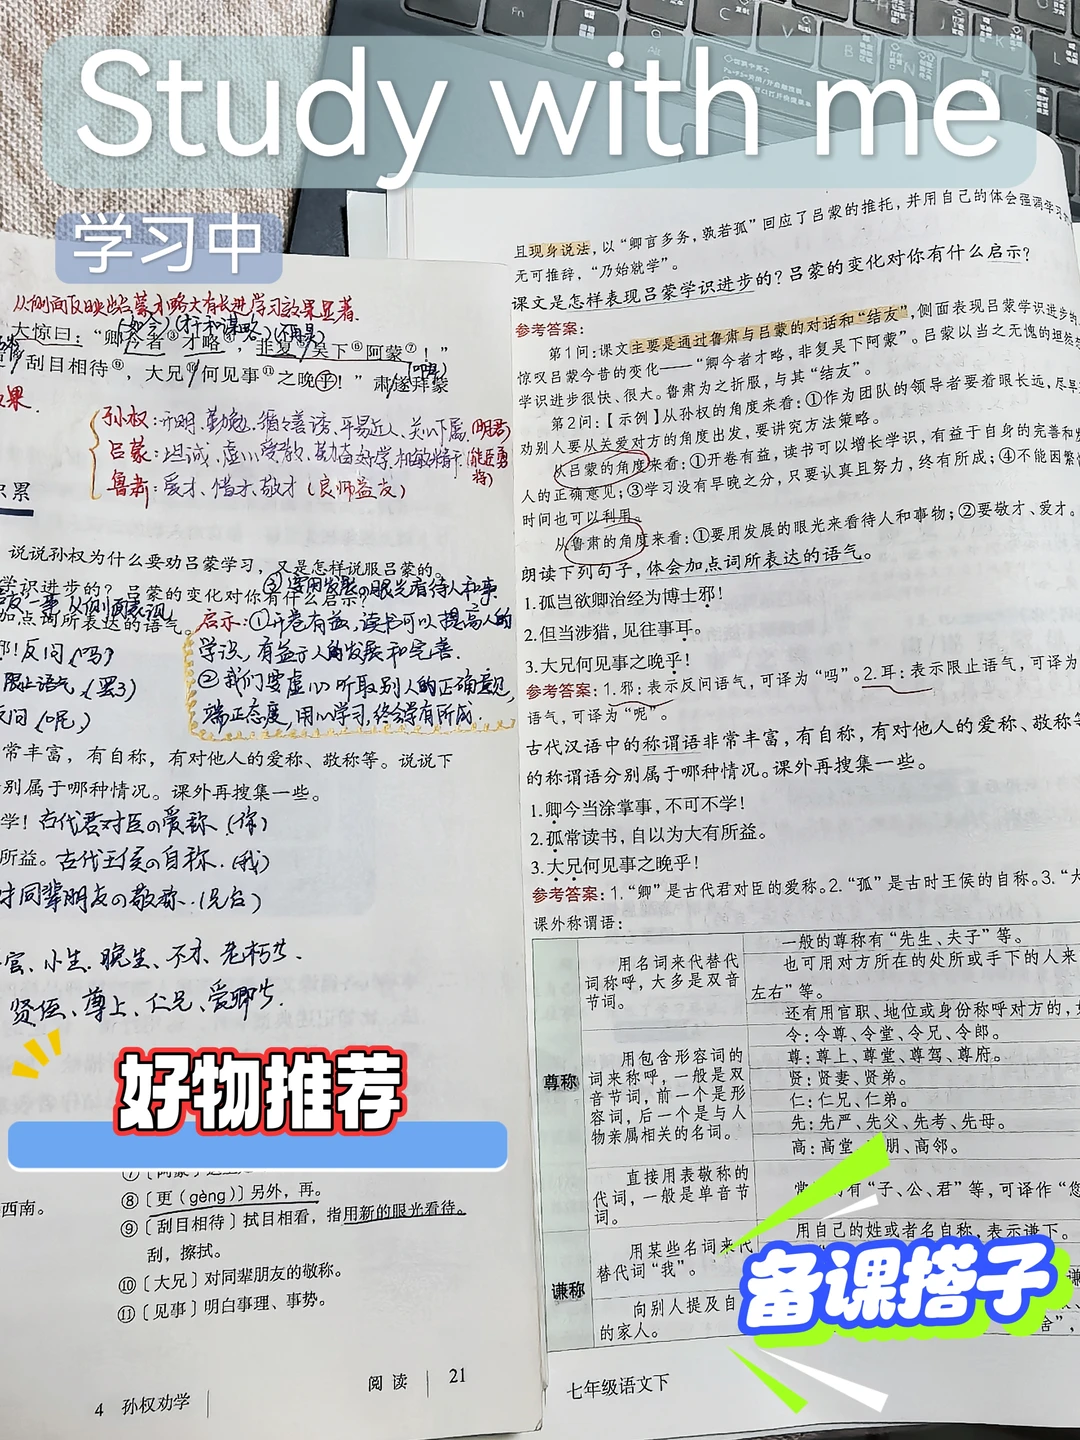 Study with me
学习中
从侧面反映出吕蒙才略大有长进,学习效果显著.
(如今)(才和谋略)(不再是)
大惊曰:“卿今者③才略④,非复⑤吴下⑥阿蒙⑦!”
刮目相待⑨,大兄⑩何见事⑪之晚乎!”肃遂拜蒙
孙权:开明、勤勉、循循善诱、平易近人、关心下属.(明君)
吕蒙:坦诚、虚心受教、勤奋好学、机敏精干(能臣勇将)
鲁肃:爱才、惜才、敬才(良师益友)
积累
说说孙权为什么要劝吕蒙学习,又是怎样说服吕蒙的。
学识进步的?吕蒙的变化对你有什么启示?
③要用发展の眼光看待人和事.
加点词所表达的语气。
启示:①开卷有益,读书可以提高人的
学识,有益于人的发展和完善.
②我们要虚心听取别人的正确意见,
端正态度,用心学习,终会学有所成.
邪!反问(吗)
限止语气,(罢了)
反问(呢)
常丰富,有自称,有对他人的爱称、敬称等。说说下
别属于哪种情况。课外再搜集一些。
学!古代君对臣の爱称.(你)
所益。古代王侯の自称.(我)
对同辈朋友の敬称.(兄台)
官、小生、晚生、不才、老朽等.
贤侄、尊上、仁兄、爱卿等.
好物推荐
⑧〔更(gèng)〕另外,再。
⑨〔刮目相待〕拭目相看,指用新的眼光看待。
刮,擦拭。
⑩〔大兄〕对同辈朋友的敬称。
⑪〔见事〕明白事理、事势。
西南。
阅读 21
4 孙权劝学
且现身说法,以“卿言多务,孰若孤”回应了吕蒙的推托,并用自己的体会强调学习
无可推辞,“乃始就学”。
课文是怎样表现吕蒙学识进步的?吕蒙的变化对你有什么启示?
参考答案:
第1问:课文主要是通过鲁肃与吕蒙的对话和“结友”,侧面表现吕蒙学识进步的
惊叹吕蒙今昔的变化——“卿今者才略,非复吴下阿蒙”。吕蒙以当之无愧的坦然
学识进步很快、很大。鲁肃为之折服,与其“结友”。
第2问:【示例】从孙权的角度来看:①作为团队的领导者要着眼长远,尽早
劝别人要从关爱对方的角度出发,要讲究方法策略。
从吕蒙的角度来看:①开卷有益,读书可以增长学识,有益于自身的完善和
人的正确意见;③学习没有早晚之分,只要认真且努力,终有所成;④不能因繁忙
时间也可以利用。
从鲁肃的角度来看:①要用发展的眼光来看待人和事物;②要敬才、爱才。
朗读下列句子,体会加点词所表达的语气。
1.孤岂欲卿治经为博士邪!
2.但当涉猎,见往事耳。
3.大兄何见事之晚乎!
参考答案:1.邪:表示反问语气,可译为“吗”。2.耳:表示限止语气,可译为
语气,可译为“呢”。
古代汉语中的称谓语非常丰富,有自称,有对他人的爱称、敬称等
的称谓语分别属于哪种情况。课外再搜集一些。
1.卿今当涂掌事,不可不学!
2.孤常读书,自以为大有所益。
3.大兄何见事之晚乎!
参考答案:1.“卿”是古代君对臣的爱称。2.“孤”是古时王侯的自称。3.“大
课外称谓语:
尊称
用名词来代替代
词称呼,大多是双音
节词。
一般的尊称有“先生、夫子”等。
也可用对方所在的处所或手下的人来
左右”等。
还有用官职、地位或身份称呼对方的,
用包含形容词的
词来称呼,一般是双
音节词,前一个是形
容词,后一个是与人
物亲属相关的名词。
令:令尊、令堂、令兄、令郎。
尊:尊上、尊堂、尊驾、尊府。
贤:贤妻、贤弟。
仁:仁兄、仁弟。
先:先严、先父、先考、先母。
高:高堂、朋、高邻。
直接用表敬称的
代词,一般是单音节
词。
有“子、公、君”等,可译作“您
谦称
用某些名词来代
替代词“我”。
用自己的姓或者名自称,表示谦下。
向别人提及自
的家人。
备课搭子
七年级语文下